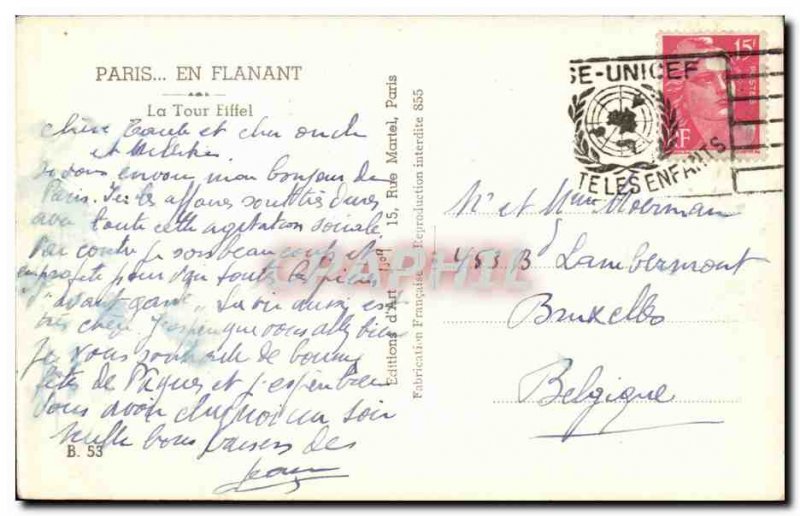 PARIS... EN FLANANT
La Tour Eiffel
Chère Tante et cher oncle
et
Je vous envoie mon bonjour de
Paris. Ici les affaires sont très dures
avec toute cette agitation sociale
Par contre je sors beaucoup et
en profite pour voir toutes les pièces
d'"avant garde". La vie aussi est
très chère. J'espère que vous allez bien
Je vous souhaite de bonnes
fêtes de Pâques et j'espère bien
vous avoir un soir
Mille bons baisers de
Jean
B. 53
Editions d'Art 15, Rue Martel, Paris
Fabrication Française Reproduction interdite 855
SE-UNICEF
TE LES ENFANTS
15F
RF
CPAPHIL
Mr et Mme Moerman
453 Bd Lambermont
Bruxelles
Belgique